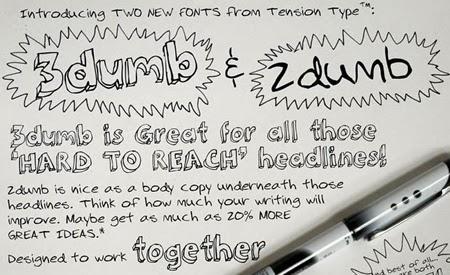 Introducing TWO NEW FONTS from Tension Type™:
3dumb & 2dumb
3dumb is Great for all those
'HARD TO REACH' headlines!
2dumb is nice as a body copy underneath those
headlines. Think of how much your writing will
improve. Maybe get as much as 20% MORE
GREAT IDEAS.*
Designed to work together
and best of all
are both